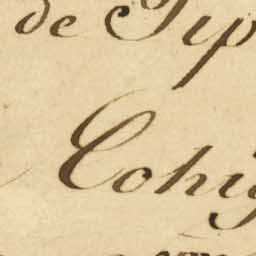 de Tip
Cohig